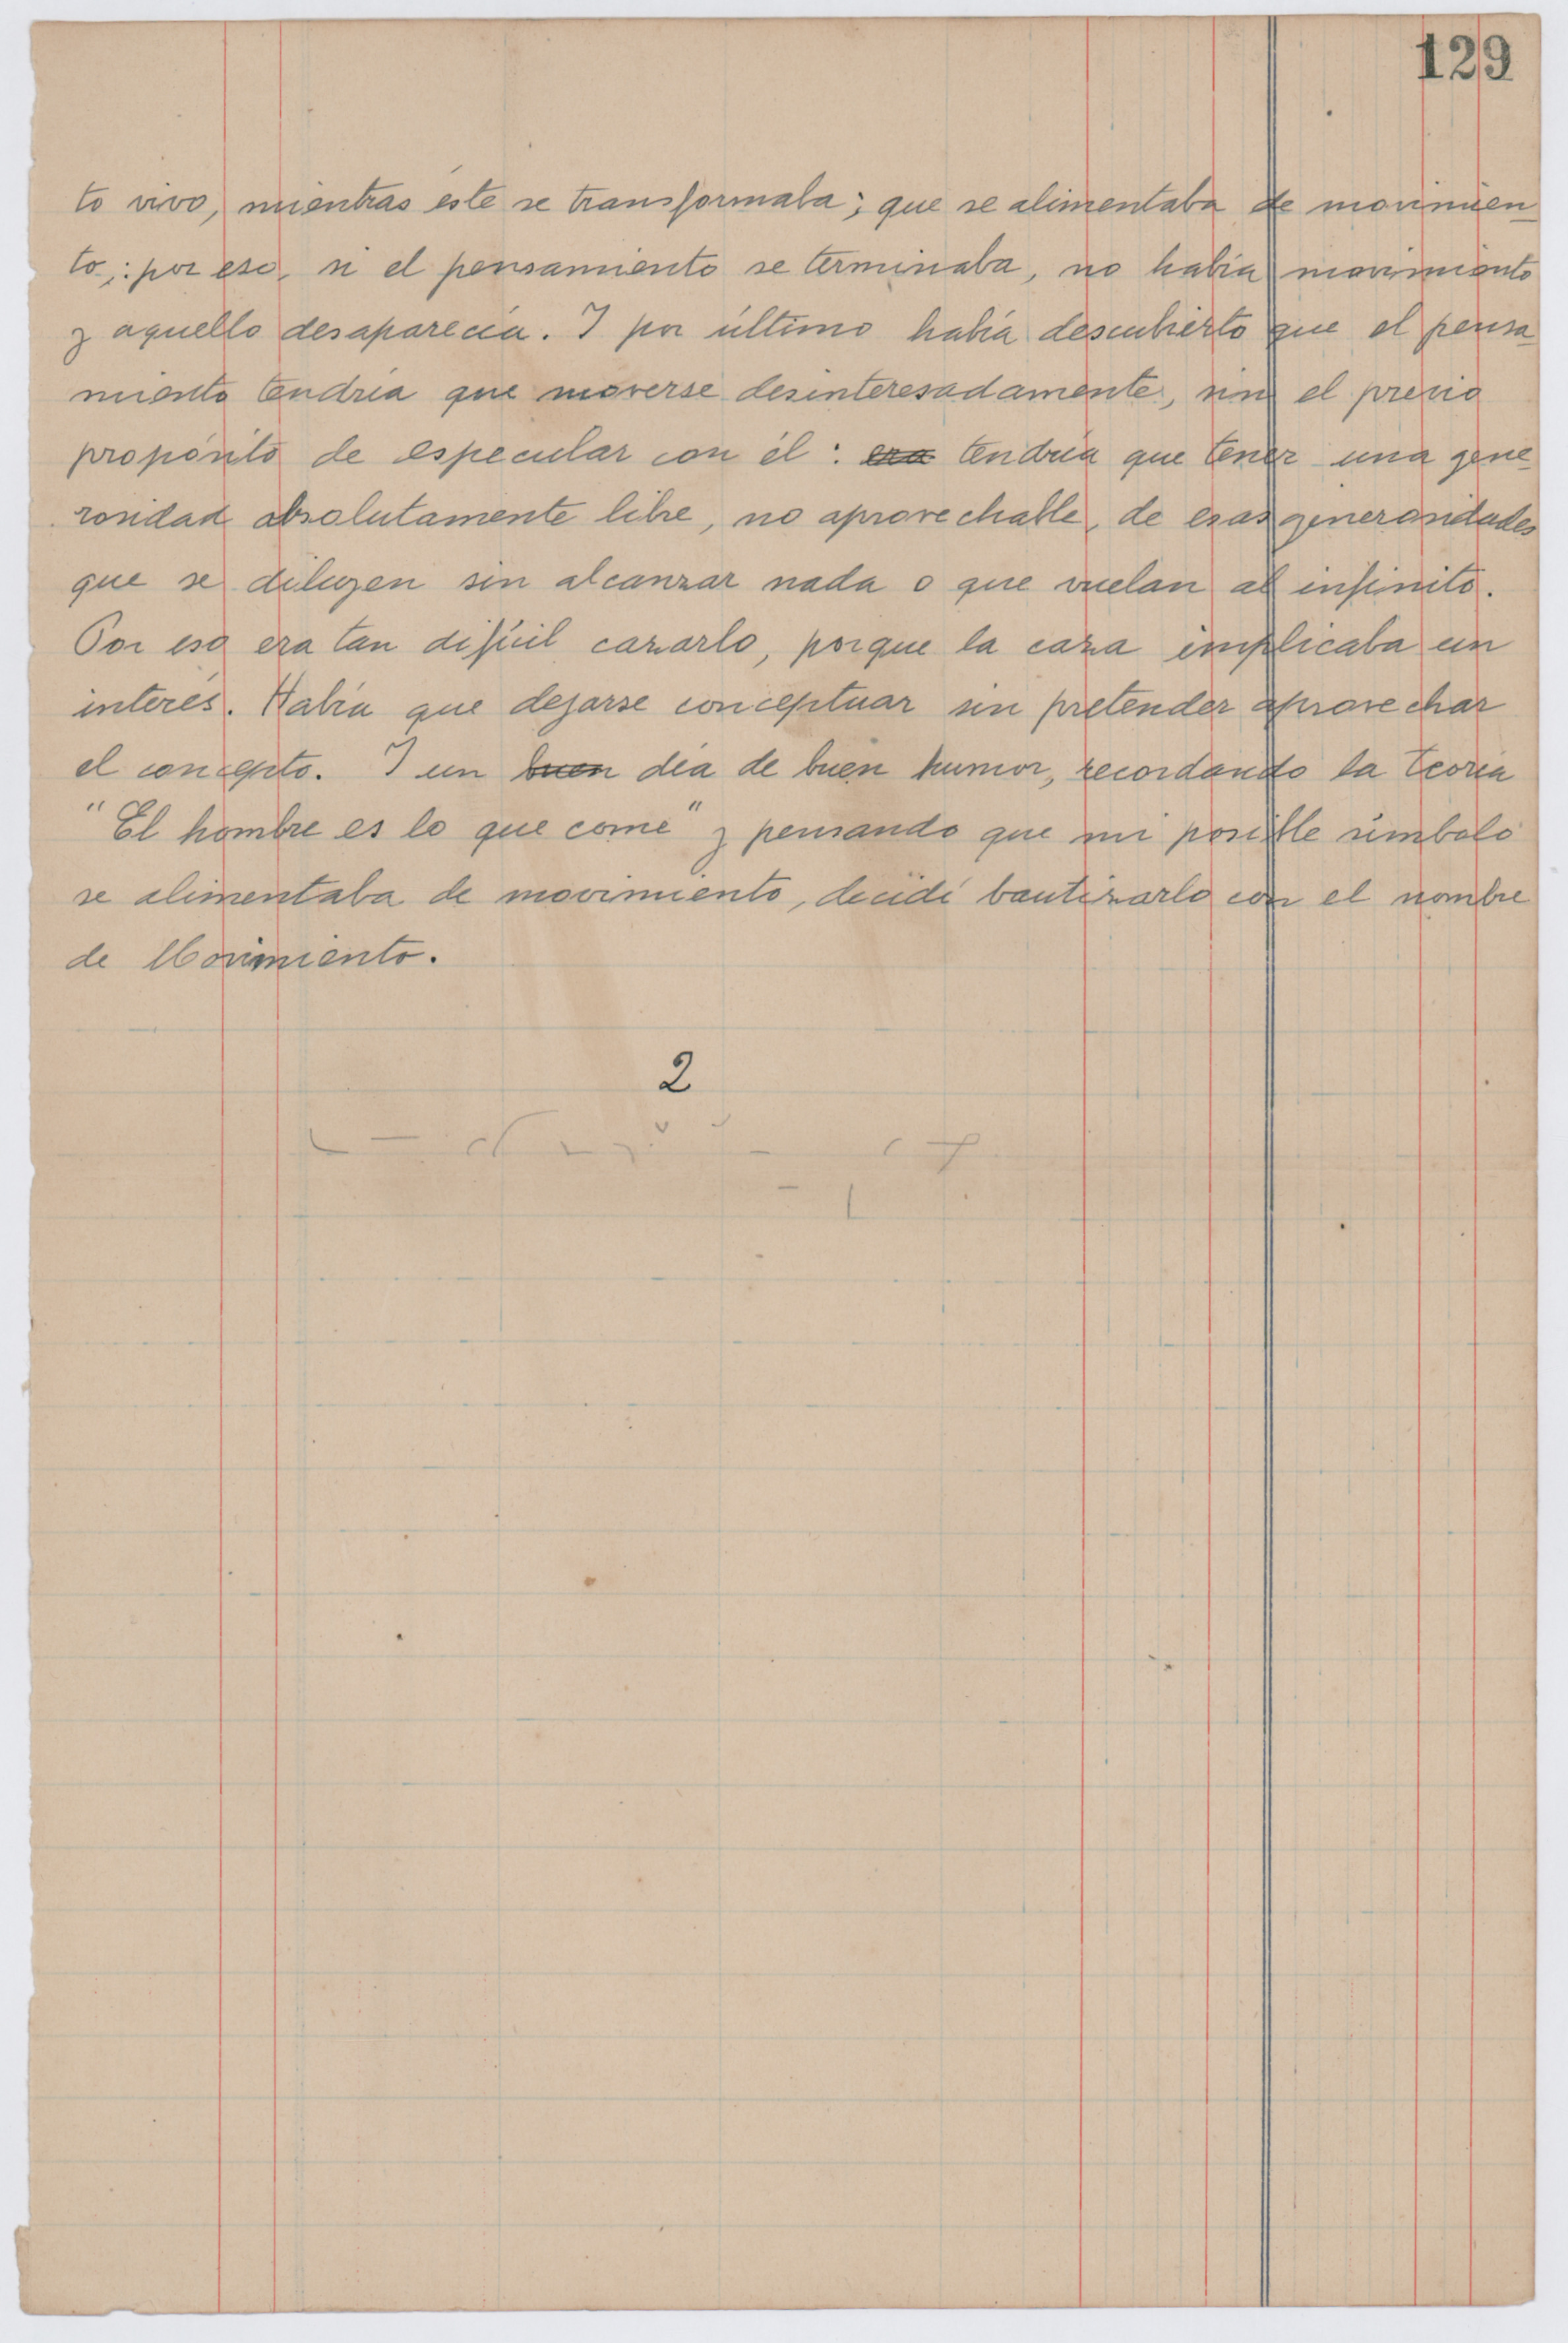 129
to vivo, mientras éste se transformaba; que se alimentaba de movimien
to; por eso, si el pensamiento se terminaba, no había movimiento
y aquello desaparecía. I por último había descubierto que el pensa
miento tendría que moverse desinteresadamente, sin el previo
propósito de especular con él: era tendría que tener una gene
rosidad absolutamente libre, no aprovechable, de esas generosidades
que se diluyen sin alcanzar nada o que vuelan al infinito.
Por eso era tan difícil cazarlo, porque la caza implicaba un
interés. Había que dejarse conceptuar sin pretender aprovechar
el concepto. I un buen día de buen humor, recordando la teoría
"El hombre es lo que come" y pensando que mi posible símbolo
se alimentaba de movimiento, decidí bautizarlo con el nombre
de Movimiento.
2